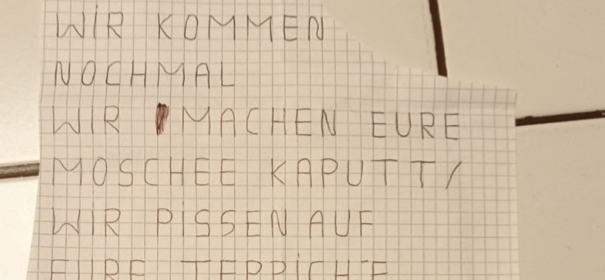 WIR KOMMEN
NOCHMAL
WIR MACHEN EURE
MOSCHEE KAPUTT/
WIR PISSEN AUF
EURE TEPPICHE